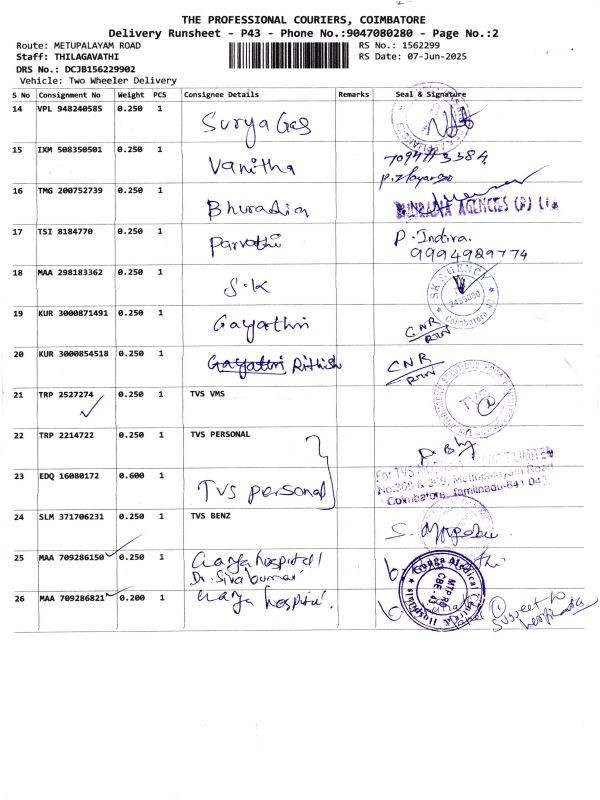 THE PROFESSIONAL COURIERS, COIMBATORE
Delivery Runsheet - P43 - Phone No.:9047080280 - Page No.:2
Route: METUPALAYAM ROAD RS No.: 1562299
Staff: THILAGAVATHI RS Date: 07-Jun-2025
DRS No.: DCJB156229902
Vehicle: Two Wheeler Delivery
S No Consignment No Weight PCS Consignee Details Remarks Seal & Signature
14 VPL 948240585 0.250 1 Surya Gas
15 IXM 508350501 0.250 1 Vanitha
16 TMG 200752739 0.250 1 Bhuradia AGENCIES (P) Ltd
17 TSI 8184770 0.250 1 Parvathi P. Indira.
9994989774
18 MAA 298183362 0.250 1 S.K SK AGENCY Coimbatore
19 KUR 3000871491 0.250 1 Gayathri CNR
RTN
20 KUR 3000854518 0.250 1 Gayathri Rithish CNR
RTN
21 TRP 2527274 0.250 1 TVS VMS TVS
22 TRP 2214722 0.250 1 TVS PERSONAL
23 EDQ 16080172 0.600 1 TVS personal For TVS LIMITED
No.308 & 309, Mettupalayam Road
Coimbatore, Tamilnadu-641 043
24 SLM 371706231 0.250 1 TVS BENZ
25 MAA 709286150 0.250 1 Ganga hospital
Dr. Sivakumar
26 MAA 709286821 0.200 1 Ganga hospital. Ganga Medical Centre & Hospitals MTP RD CBE-43